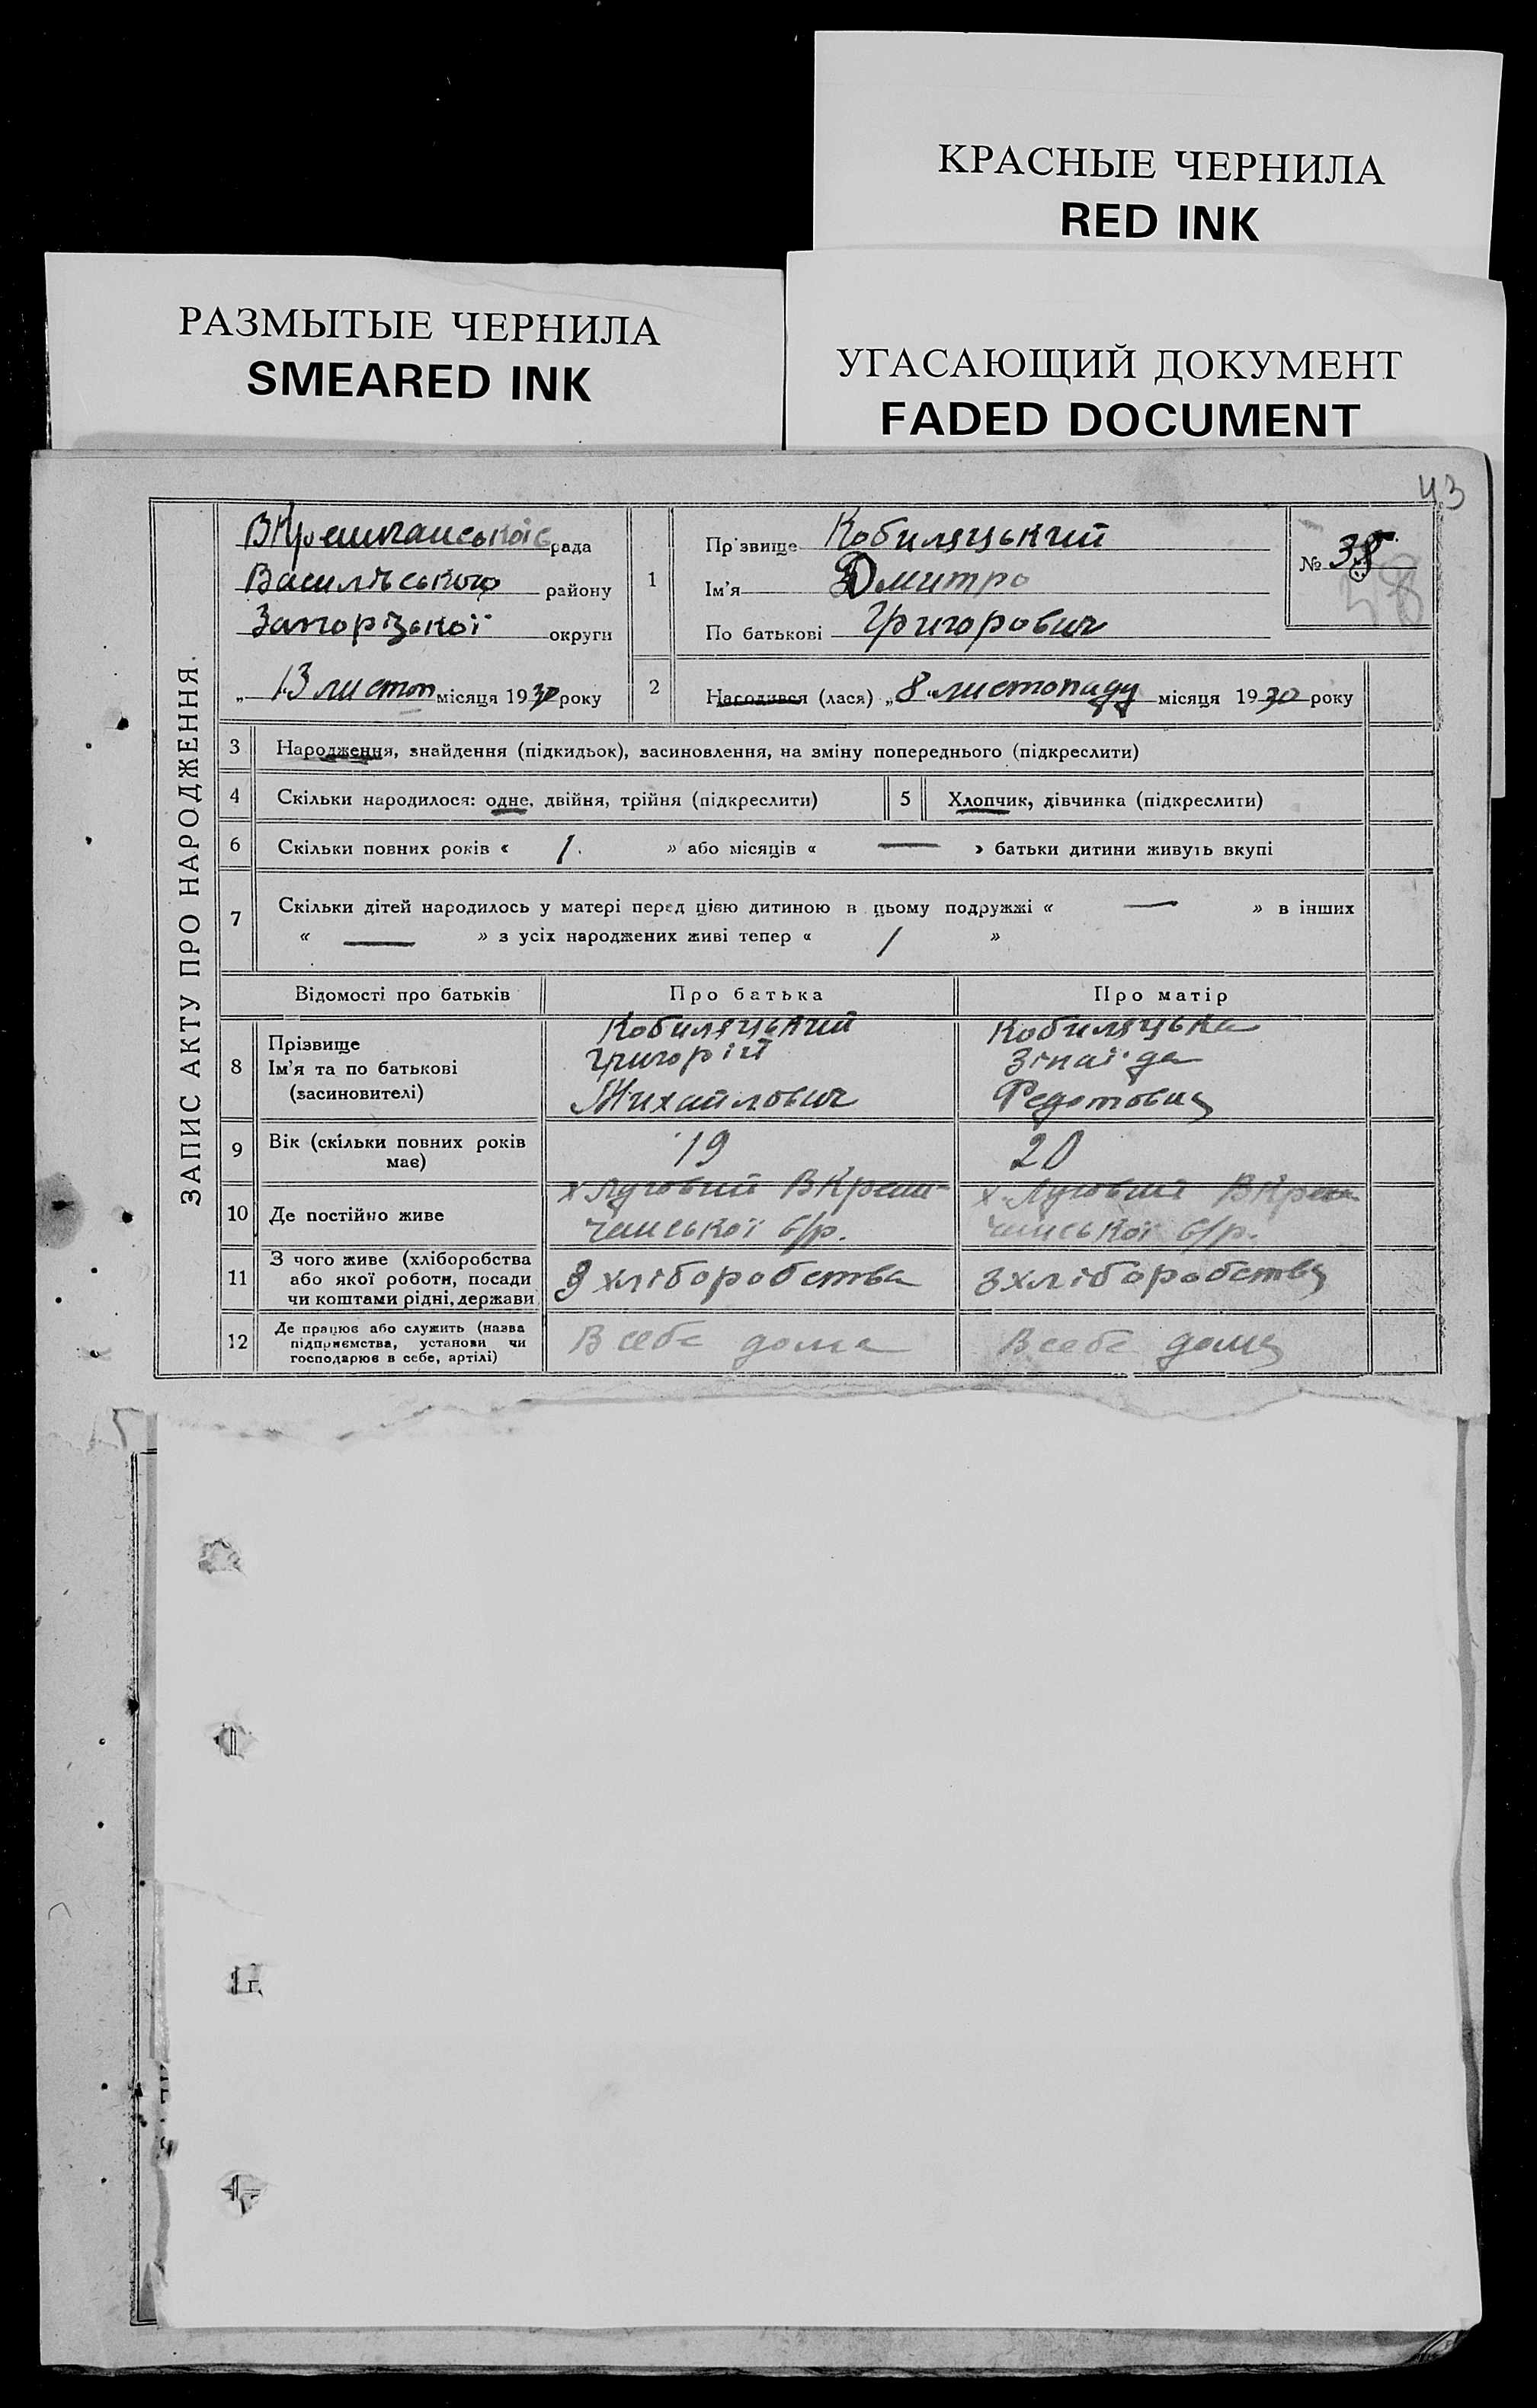 КРАСНЫЕ ЧЕРНИЛА
RED INK
РАЗМЫТЫЕ ЧЕРНИЛА
SMEARED INK
УГАСАЮЩИЙ ДОКУМЕНТ
FADED DOCUMENT
43
ЗАПИС АКТУ ПРО НАРОДЖЕННЯ.
ВКрешчанської с рада
Василівського району
Запорізької округи
„ 13 листоп місяця 1930 року
1
Прізвище Кобиляцький
Ім'я Дмитро
По батькові Григорович
№ 38
38
2 Народився (лася) „ 8 „ листопаду місяця 1930 року
3 Народження, знайдення (підкидьок), засиновлення, на зміну попереднього (підкреслити)
4 Скільки народилося: одне, двійня, трійня (підкреслити) 5 Хлопчик, дівчинка (підкреслити)
6 Скільки повних років « 1. » або місяців « — » батьки дитини живуть вкупі
7 Скільки дітей народилось у матері перед цією дитиною в цьому подружжі « — » в інших
« — » з усіх народжених живі тепер « 1 »
Відомості про батьків Про батька Про матір
8 Прізвище
Ім'я та по батькові
(засиновителі)
Кобиляцький
Григорій
Михайлович
Кобиляцька
Зінаїда
Федотовна
9 Вік (скільки повних років
має)
19
20
10 Де постійно живе
х Луговий ВКреш-
чанської с/р.
х. Луговий ВКреш-
чанської с/р.
11 З чого живе (хліборобства
або якої роботи, посади
чи коштами рідні, держави
З хліборобства
З хліборобства
12 Де працює або служить (назва
підприємства, установи чи
господарює в себе, артілі)
В себе дома
В себе дома